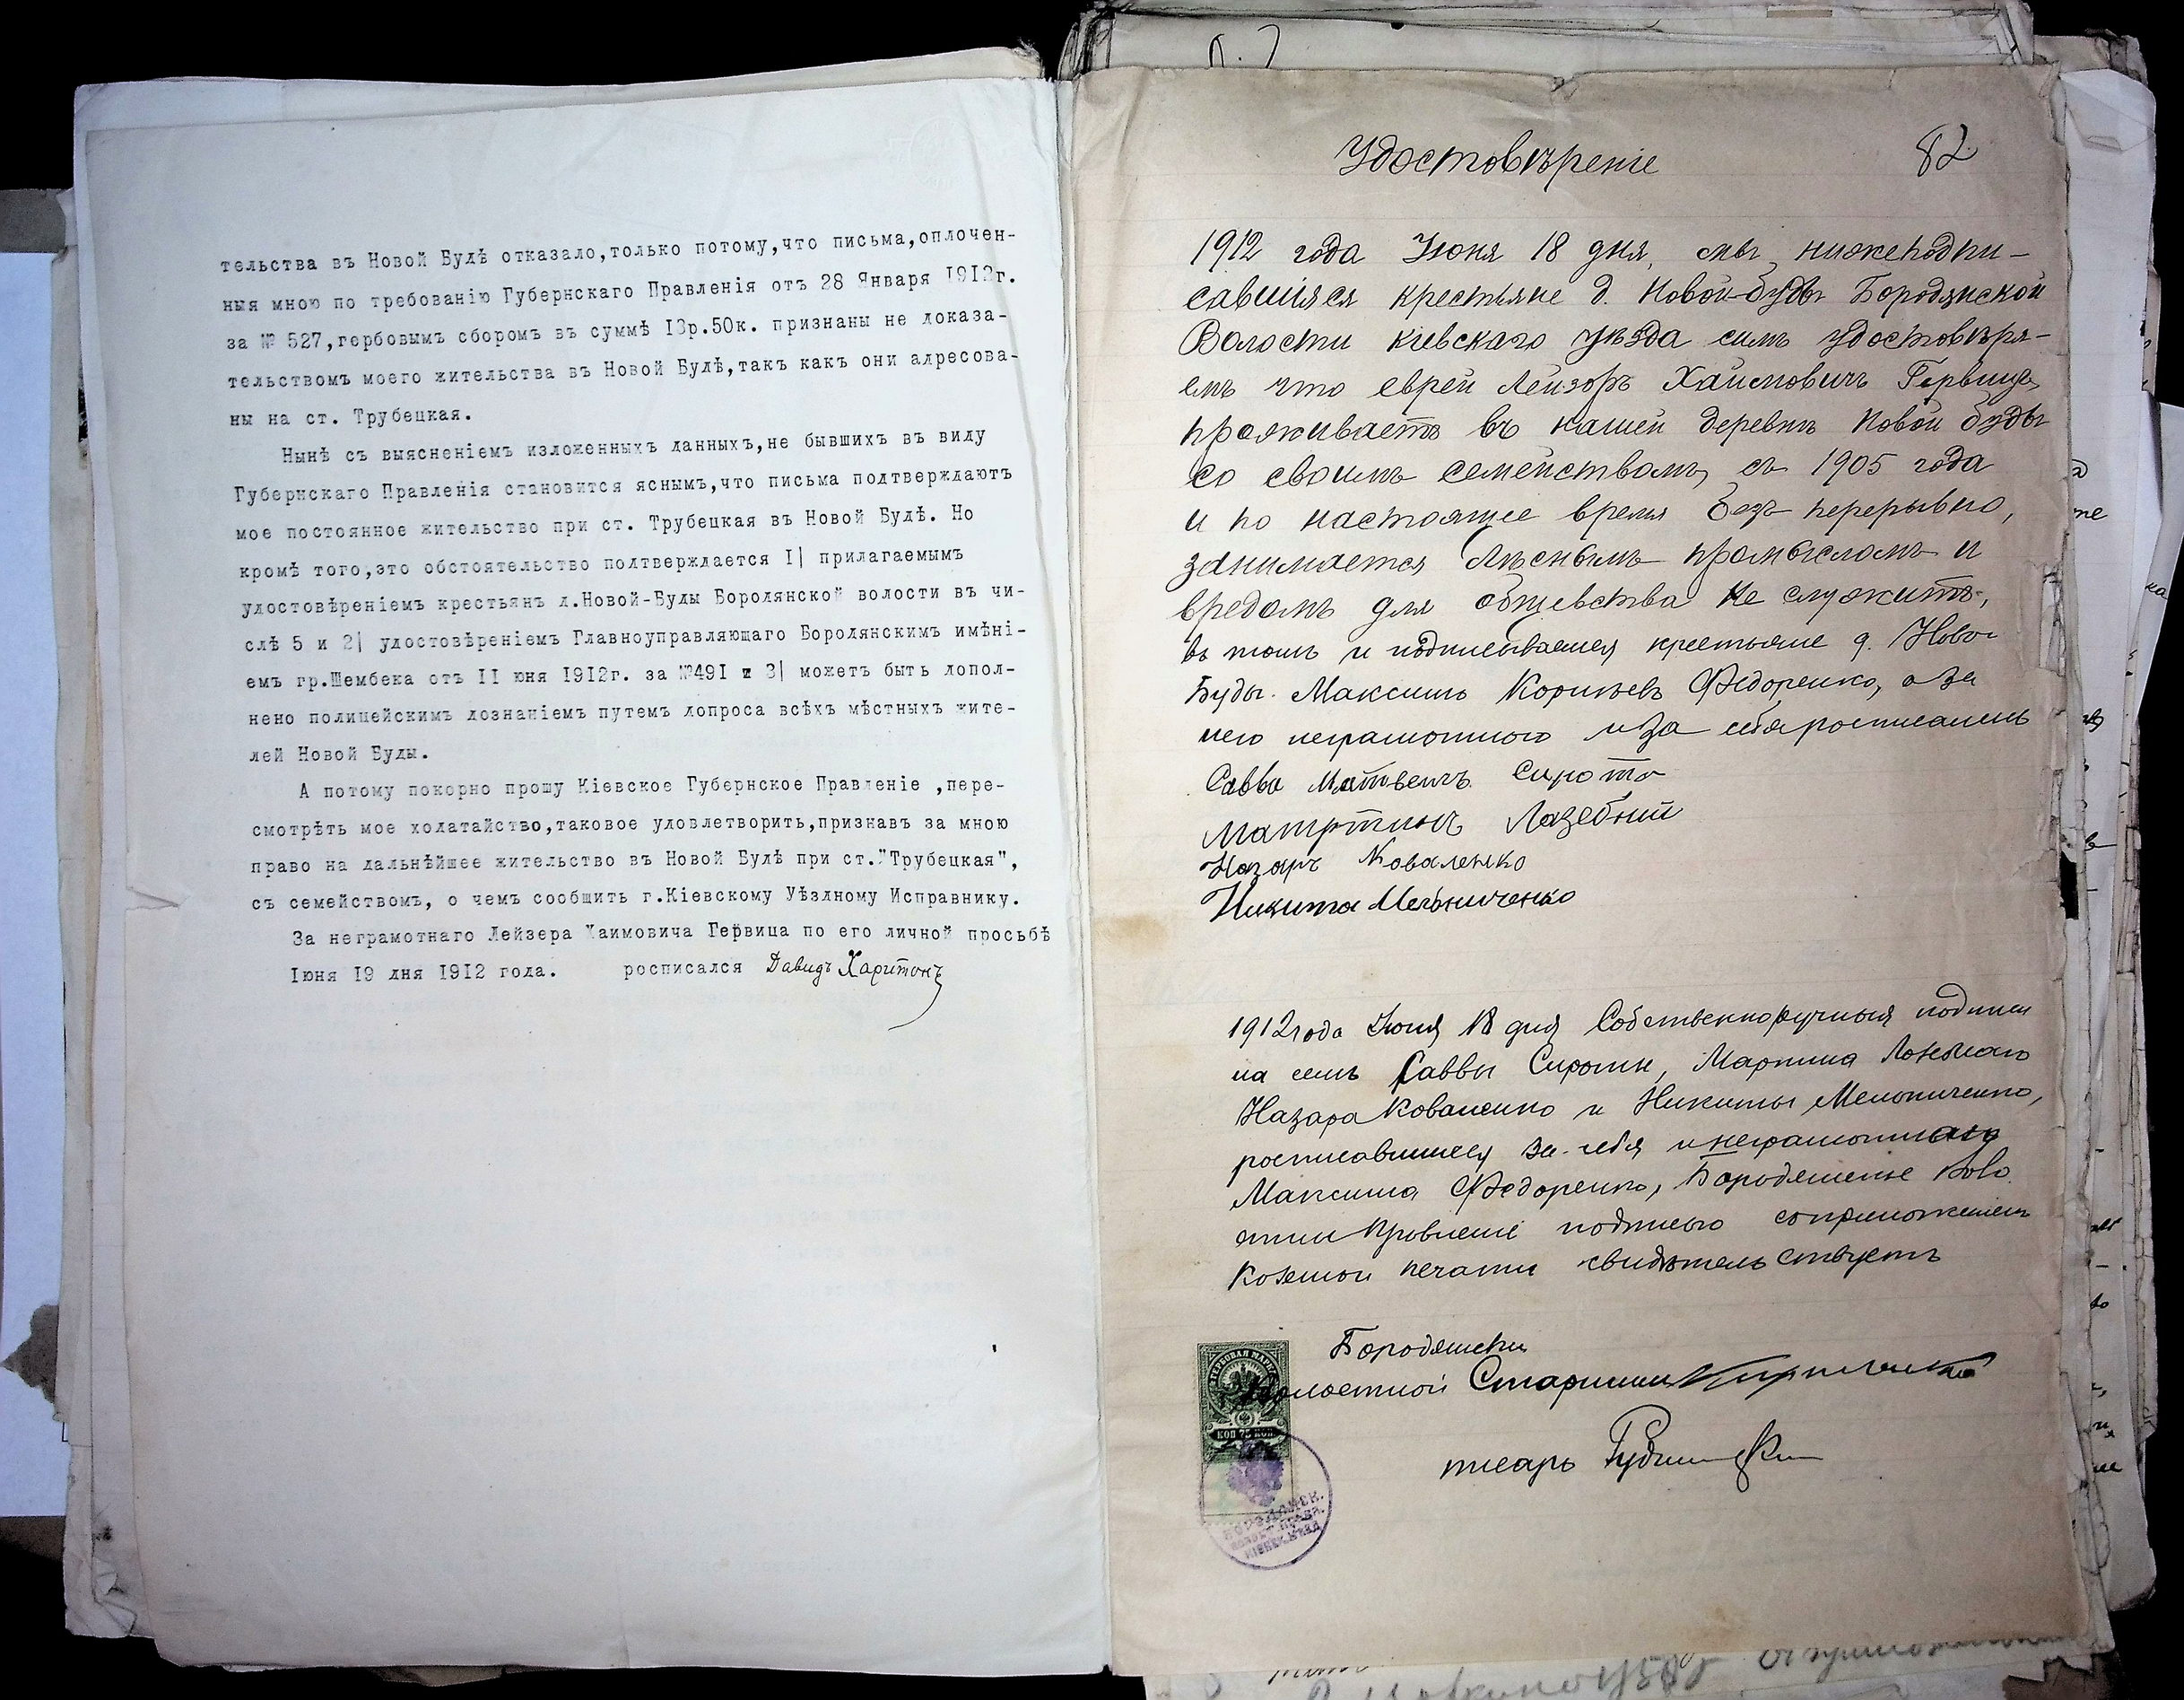 тельства въ Новой Будѣ отказало,только потому,что письма,оплочен-
ныя мною по требованію Губернскаго Правленія отъ 28 Января 1912г.
за № 527,гербовымъ сборомъ въ суммѣ 13р.50к. признаны не доказа-
тельствомъ моего жительства въ Новой Будѣ,такъ какъ они адресова-
ны на ст. Трубецкая.
Нынѣ съ выясненіемъ изложенныхъ данныхъ,не бывшихъ въ виду
Губернскаго Правленія становится яснымъ,что письма подтверждаютъ
мое постоянное жительство при ст. Трубецкая въ Новой Будѣ. Но
кромѣ того,это обстоятельство подтверждается I| прилагаемымъ
удостовѣреніемъ крестьянъ д.Новой-Буды Бородянской волости въ чи-
слѣ 5 и 2| удостовѣреніемъ Главноуправляющаго Бородянскимъ имѣні-
емъ гр.Шембека отъ II юня 1912г. за №491 и 3| можетъ быть допол-
нено полицейскимъ дознаніемъ путемъ допроса всѣхъ мѣстныхъ жите-
лей Новой Буды.
А потому покорно прошу Кіевское Губернское Правленіе ,пере-
смотрѣть мое ходатайство,таковое удовлетворить,признавъ за мною
право на дальнѣйшее жительство въ Новой Будѣ при ст."Трубецкая",
съ семействомъ, о чемъ сообщить г.Кіевскому Уѣздному Исправнику.
За неграмотнаго Лейзера Хаимовича Гервица по его личной просьбѣ
Іюня 19 дня 1912 года. росписался Давидъ Харитонъ
82
Удостовѣреніе
1912 года Июня 18 дня, мы нижеподпи-
савшіяся крестьяне д. Новой-Буды Бородянской
Волости киевскаго уѣзда симъ удостовѣря-
емъ что еврей Лейзоръ Хаимовичъ Гервицъ
проживаетъ въ нашей деревнѣ Новой Буды
со своимъ семействомъ, съ 1905 года
и по настоящее время безъ перерывно,
занимается Лѣснымъ промысломъ и
вредомъ для общевства не служитъ,
въ томъ и подписываемся крестьяне д. Новой
Буды. Максимъ Корнѣевъ Федоренко, а за
него неграмотного и за себя росписались
Савва Матвеичъ Сирота
Лазебний
Назаръ Коваленко
Никита Мельниченко
1912 года Июня 18 дня Собственноручныя подписи
на семъ Саввы Сироты, Мартина Лазебнаго
Назара Коваленко и Никиты Мельниченко,
росписавшиеся за себя и неграмотнаго
Максима Федоренко, Бородянское Воло
стни Провленіе подписью соприложениемъ
Коземои печати свидѣтельствуетъ
Бородянски
Волостной Старшина
писарь
ГЕРБОВАЯ МАРКА
КОП 75 КОП